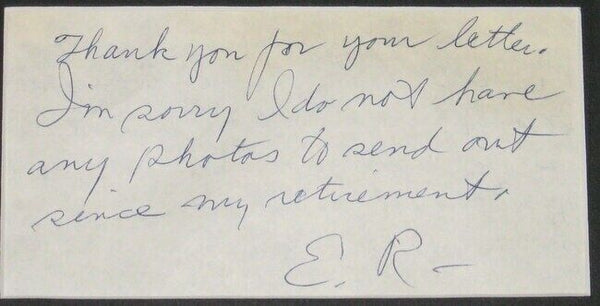 Thank you for your letter.
I'm sorry I do not have
any photos to send out
since my retirement.
E. R-